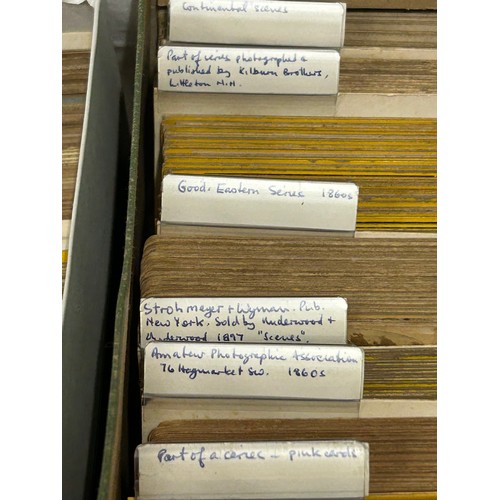 Continental Scenes
Part of series photographed &
published by Kilburn Brothers,
Littleton N.H.
Good. Eastern Series 1860s
Strohmeyer & Wyman. Pub.
New York. Sold by Underwood &
Underwood 1897 "Scenes".
Amateur Photographic Association
76 Haymarket SW. 1860s
Part of a series – pink cards